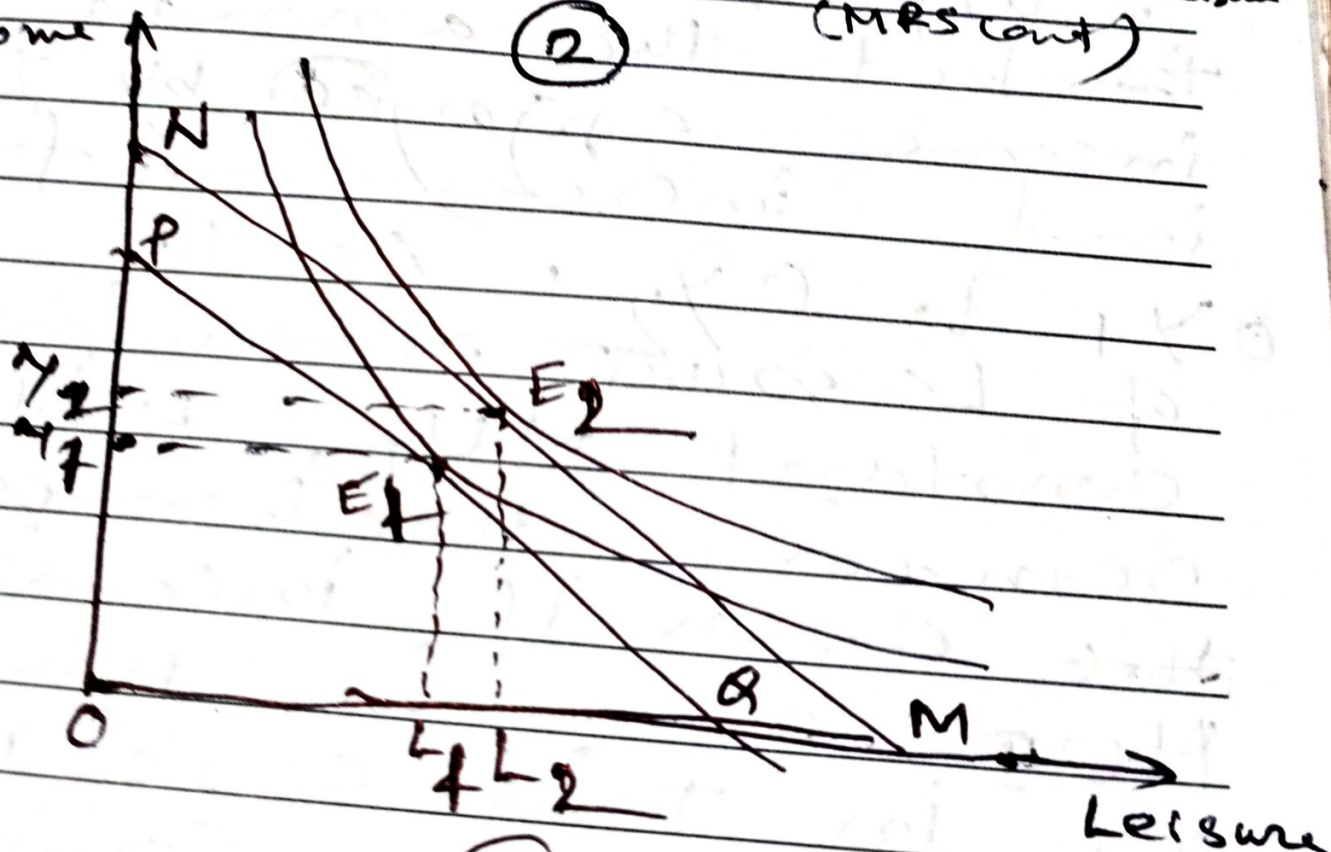 ome
2
(MRS cont)
N
P
Y2
E2
Y1
E1
Q
M
O
L1 L2
Leisure